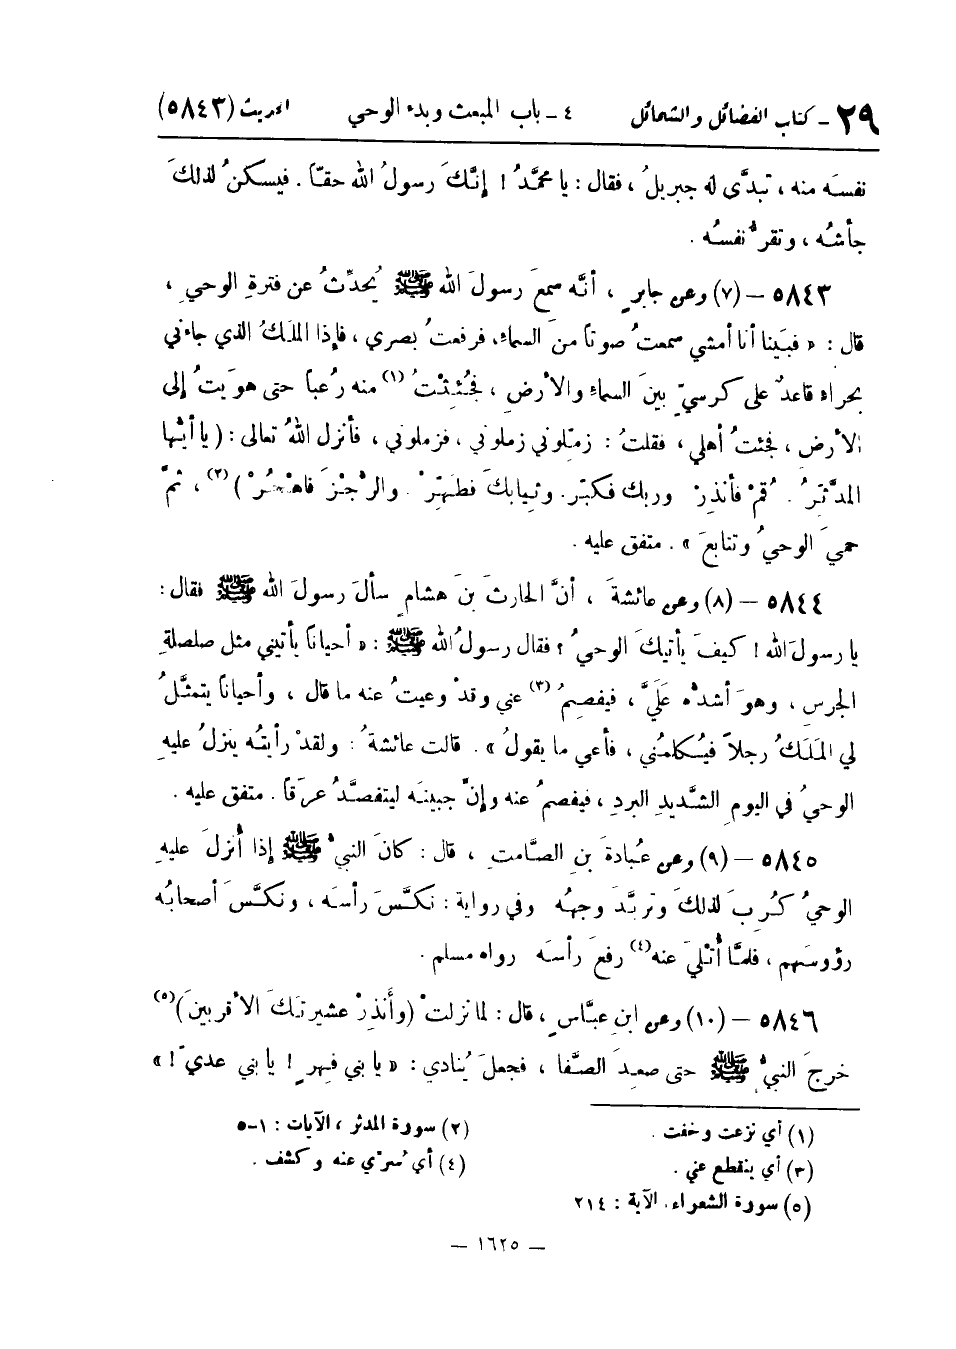 ٢٩ ـ كتاب الفضائل والشمائل ٤ ـ باب المبعث وبدء الوحي الحديث (٥٨٤٣)
نفسَه منه ، تبدَّى له جبريلُ ، فقال : يا محمَّدُ ! إنَّكَ رسولُ الله حقّاً . فيسكنُ لذلكَ
جأشُه ، وتقرُّ نفسُه .
٥٨٤٣ – (٧) وعن جابرٍ ، أنَّه سمعَ رسولَ الله ﷺ يُحدِّثُ عن فترةِ الوحيِ ،
قال : « فبَينا أنا أمشي سمعتُ صوتاً منَ السماءِ، فرفعتُ بصري ، فإذا الملَكُ الذي جاءني
بحراء قاعدٌ على كرسيّ بينَ السماءِ والأرضِ ، فجُئِثْتُ (١) منه رُعباً حتى هوَيتُ إلى
الأرض ، فجئتُ أهلي ، فقلتُ : زمّلوني زملوني ، فزملوني ، فأنزل اللهُ تعالى : ( يا أيُّها
المدَّثرُ . قُمْ فأنذِرْ وربك فكبّر . وثيابكَ فطهِّرْ . والرُّجْزَ فاهْجُرْ ) (٢) ، ثمَّ
حميَ الوحيُ وتتابعَ » . متفق عليه .
٥٨٤٤ – (٨) وعن عائشةَ ، أنَّ الحارثَ بنَ هشامٍ سألَ رسولَ الله ﷺ فقال :
يا رسولَ الله ! كيفَ يأتيكَ الوحيُ ؟ فقال رسولُ الله ﷺ : « أحياناً يأتيني مثل صلصلةِ
الجرسِ ، وهوَ أشدُّه عَلَيَّ ، فيفصِمُ (٣) عني وقدْ وعيتُ عنه ما قال ، وأحياناً يتمثَّلُ
لي المَلَكُ رجلاً فيُكلمُني ، فأعي ما يقولُ » . قالت عائشةُ : ولقدْ رأيتُه ينزلُ عليهِ
الوحيُ في اليومِ الشَّديدِ البردِ ، فيفصمُ عنه وإنَّ جبينَه ليتفصَّدُ عرَقاً . متفق عليه .
٥٨٤٥ – (٩) وعن عُبادةَ بنِ الصَّامتِ ، قال : كانَ النبيُّ ﷺ إذا أُنزلَ عليهِ
الوحيُ كُرِبَ لذلكَ وتربَّدَ وجهُه وفي رواية : نكَّسَ رأسَه ، ونكَّسَ أصحابُه
رؤوسَهم ، فلمَّا أُتْليَ عنه (٤) رفعَ رأسَه رواه مسلم .
٥٨٤٦ – (١٠) وعن ابنِ عبَّاسٍ ، قال : لما نزلتْ ( وأَنذِرْ عشيرتَكَ الأقربينَ ) (٥)
خرجَ النبيُّ ﷺ حتى صعِدَ الصَّفا ، فجعلَ يُنادي : « يا بني فِهرٍ ! يا بني عدي ! »
(١) أي نزعت وخفت . (٢) سورة المدثر ، الآيات : ١-٥
(٣) أي ينقطع عني . (٤) أي سُرّي عنه وكشف .
(٥) سورة الشعراء، الآية : ٢١٤
– ١٦٢٥ –